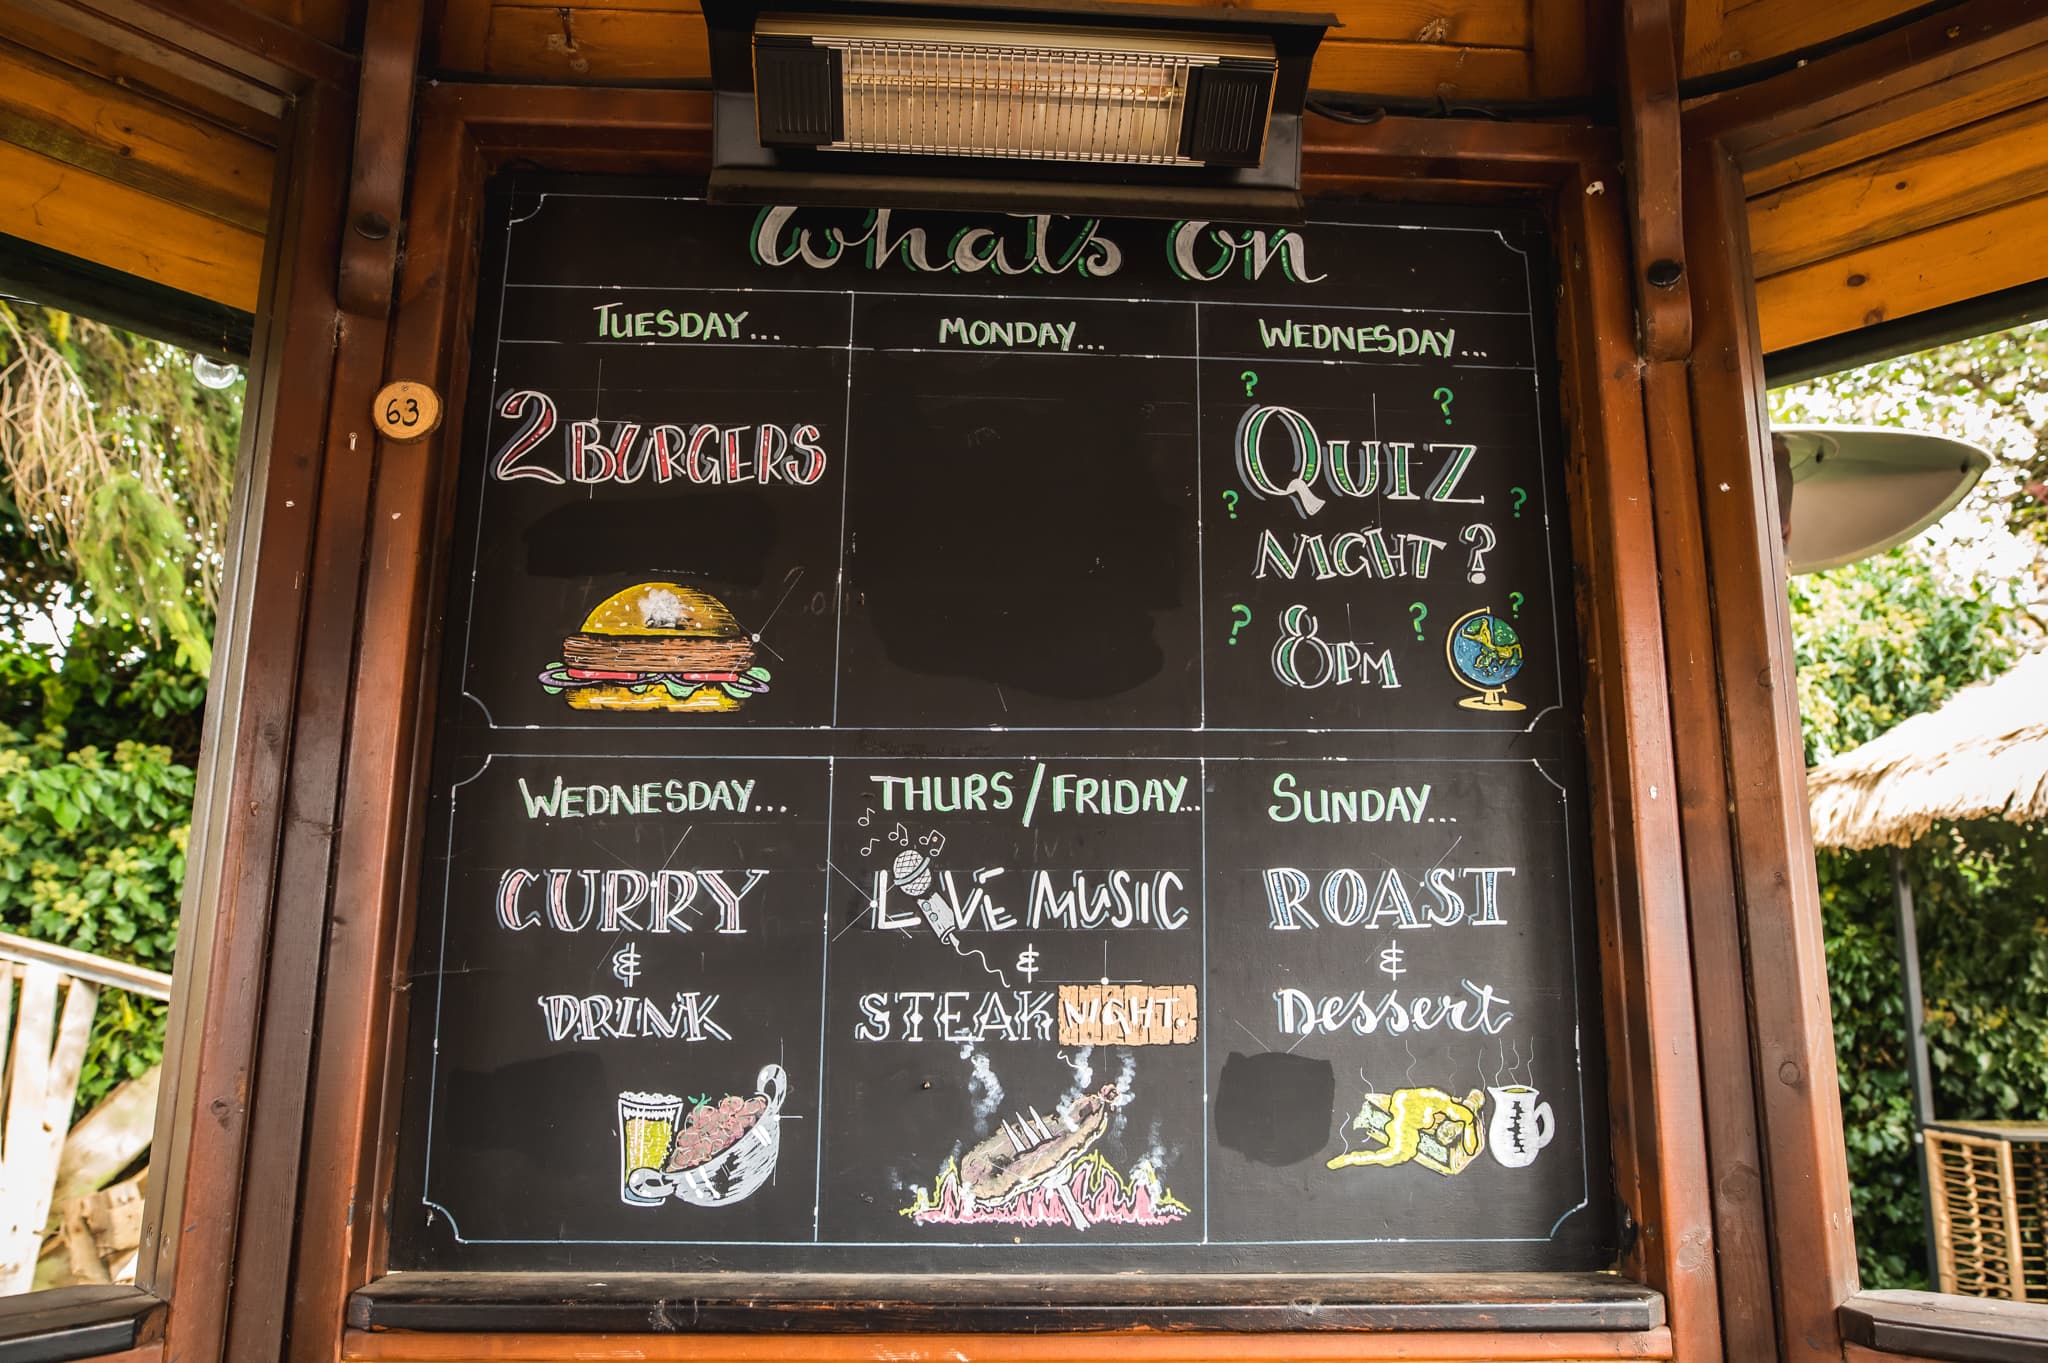 What's On
TUESDAY...
2 BURGERS
MONDAY...
WEDNESDAY...
QUIZ
NIGHT ?
8PM
WEDNESDAY...
CURRY
&
DRINK
THURS / FRIDAY...
LIVE MUSIC
&
STEAK NIGHT.
SUNDAY...
ROAST
&
Dessert
63